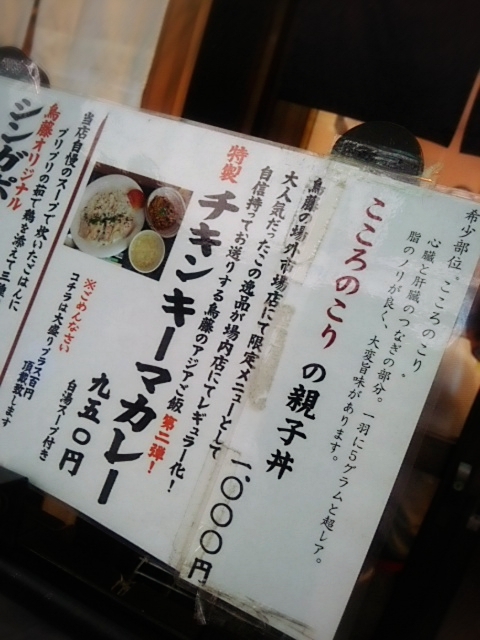 希少部位。こころのこり。
心臓と肝臓のつなぎの部分。一羽に5グラムと超レア。
脂のノリが良く、大変旨味があります。
こころのこりの親子丼
一、〇〇〇円
鳥藤の場外市場店にて限定メニューとして
大人気だったこの逸品が場内店にてレギュラー化！
自信持ってお送りする鳥藤のアジアご飯第二弾！
特製
チキンキーマカレー
九五〇円
白湯スープ付き
※ごめんなさい
コチラは大盛りプラス百円
頂戴致します
当店自慢のスープで炊いたごはんに
プリプリの茹で鶏を添えて三種
鳥藤オリジナル
シンガポ